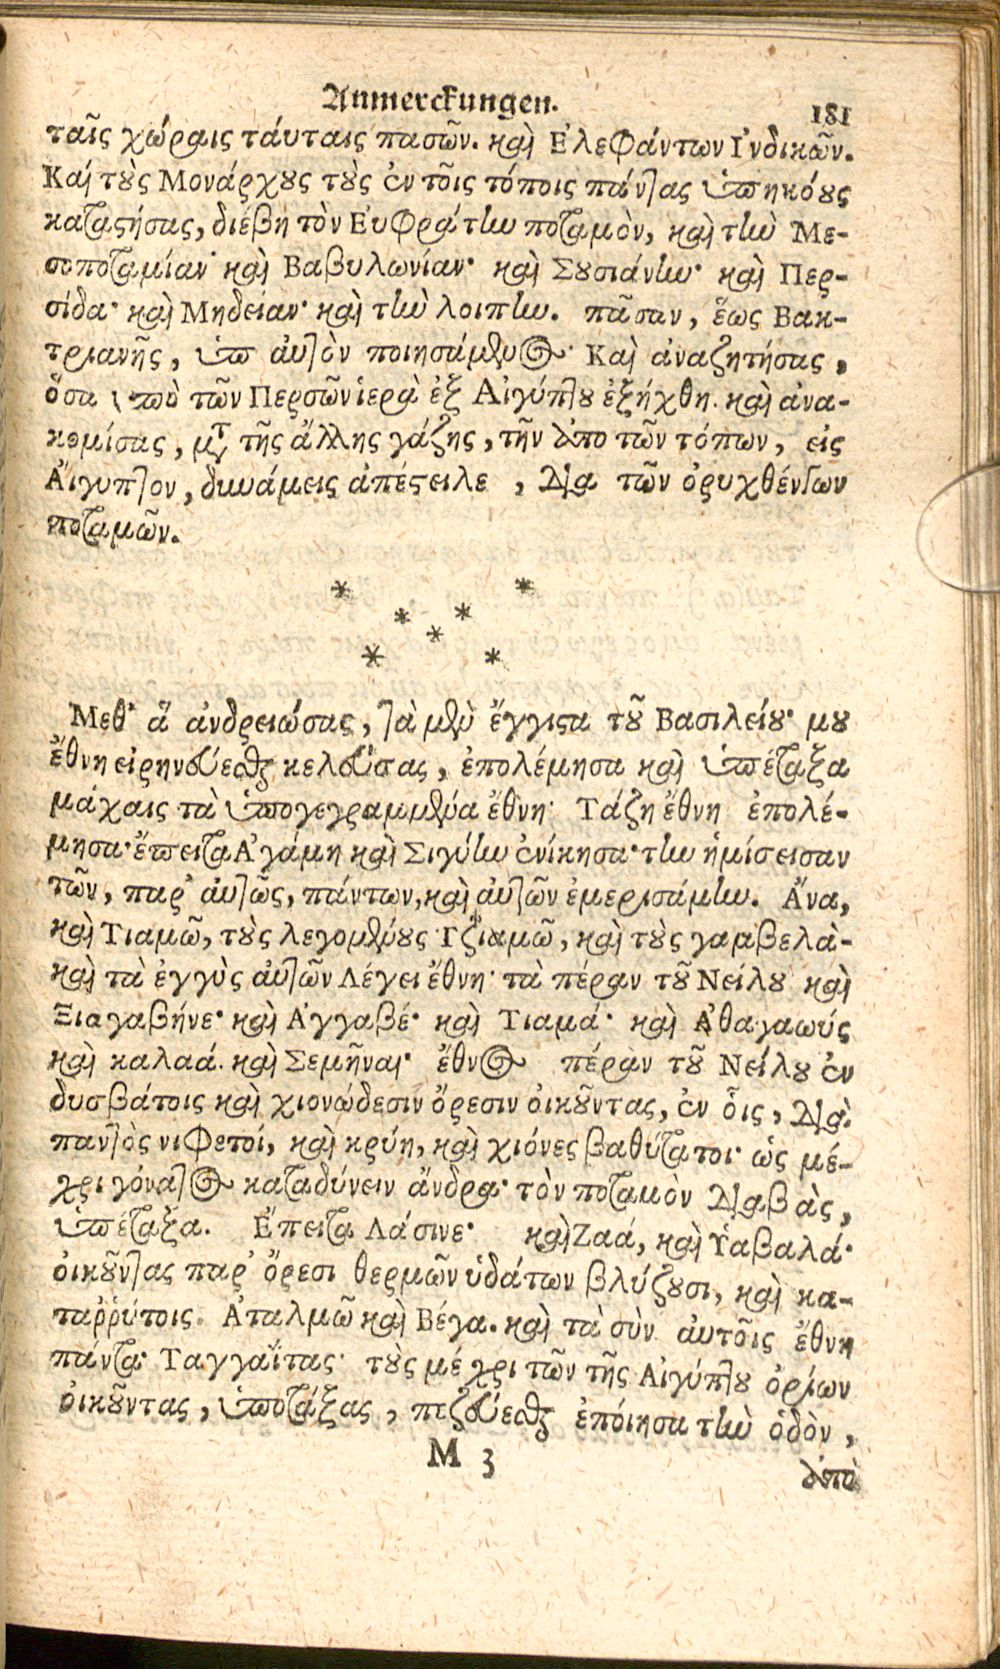 Anmerckungen. 181
ταῖς χώραις τάυταις πασῶν. καὶ Ἐλεφάντων Ἰνδικῶν.
Καὶ τοὺς Μονάρχους τοὺς ἐν τοῖς τόποις πάντας ὑπηκόους
καταστήσας, διέβη τὸν Ἐυφράτην ποταμὸν, καὶ τὴν Με-
σοποταμίαν· καὶ Βαβυλωνίαν· καὶ Σουσιάνην· καὶ Περ-
σίδα· καὶ Μηδείαν· καὶ τὴν λοιπὴν. πᾶσαν, ἕως Βακ-
τριανῆς, ὑπ ἀυτὸν ποιησάμενος· Καὶ ἀναζητήσας,
ὅσα ὑπὸ τῶν Περσῶν ἱερὰ ἐξ Αἰγύπτου ἐξήχθη. καὶ ἀνα-
κομίσας, μετ τῆς ἄλλης γάζης, τῆν ἀπο τῶν τόπων, εἰς
Ἄιγυπτον, δυνάμεις ἀπέστειλε, δια τῶν ὀρυχθέντων
ποταμῶν.
* * * * * * *
Μεθ' ἃ ἀνδρειώσας, τὰ μὲν ἔγγιστα τοῦ Βασιλείου· μου
ἔθνη εἰρηνεύεσθαι κελεύσας, ἐπολέμησα καὶ ὑπέταξα
μάχαις τὰ ὑπογεγραμμένα ἔθνη· Τάζη ἔθνη ἐπολέ-
μησα· ἔπειτα Ἀγάμη καὶ Σιγύην ἐνίκησα· την ἡμίσεισαν
τῶν, παρ' ἀυτῶς, πάντων, καὶ ἀυτῶν ἐμερισάμην. Ἄνα,
καὶ Τιαμῶ, τοὺς λεγομένους Τζιαμῶ, καὶ τοὺς γαμβελὰ-
καὶ τὰ ἐγγὺς ἀυτῶν Λέγει ἔθνη· τὰ πέραν τοῦ Νείλου καὶ
Ξιαγαβήνε· καὶ Ἀγγαβέ· καὶ Τιαμά· καὶ Ἀθαγαωύς
καὶ καλαά. καὶ Σεμῆναι· ἔθνος πέραν τοῦ Νείλου ἐν
δυσβάτοις καὶ χιονώδεσιν ὄρεσιν οἰκοῦντας, ἐν οἷς, διὰ
παντὸς νιφετοί, καὶ κρύη, καὶ χιόνες βαθύτατοι· ὡς μέ-
χρι γόνατος καταδύνειν ἄνδρα· τὸν ποταμὸν διαβὰς,
ὑπέταξα. Ἔπειτα Λάσινε· καὶ Ζαά, καὶ Ὑαβαλά·
οἰκοῦντας παρ' ὄρεσι θερμῶν ὑδάτων βλύζουσι, καὶ κα-
ταῤῥύτοις. Ἀταλμῶ καὶ Βέγα. καὶ τὰ σὺν ἀυτοῖς ἔθνη
πάντα· Ταγγαΐτας· τοὺς μέχρι τῶν τῆς Αἰγύπτου ὁρίων
οἰκοῦντας, ὑποτάξας, πεζεύεσθαι ἐπόιησα τὴν ὁδὸν,
M 3 ἀπὸ